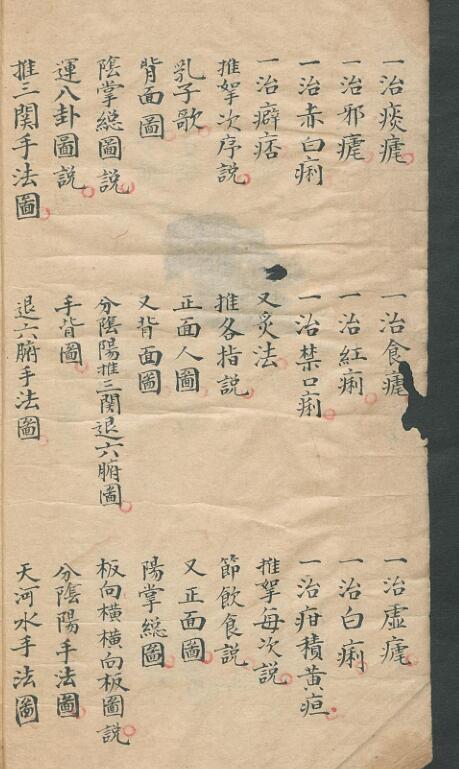 一治痰瘧 一治食瘧 一治虛瘧
一治邪瘧 一治紅痢 一治白痢
一治赤白痢 一治禁口痢 一治疳積黃疸
一治癖痞 又炙法 推拏每次說
推拏次序說 推各指說 節飲食說
乳子歌 正面人圖 又正面圖
背面圖 又背面圖 陽掌緫圖
隂掌緫圖說 分隂陽推三関退六腑圖 板向橫橫向板圖說
運八卦圖說 手背圖 分隂陽手法圖
推三関手法圖 退六腑手法圖 天河水手法圖